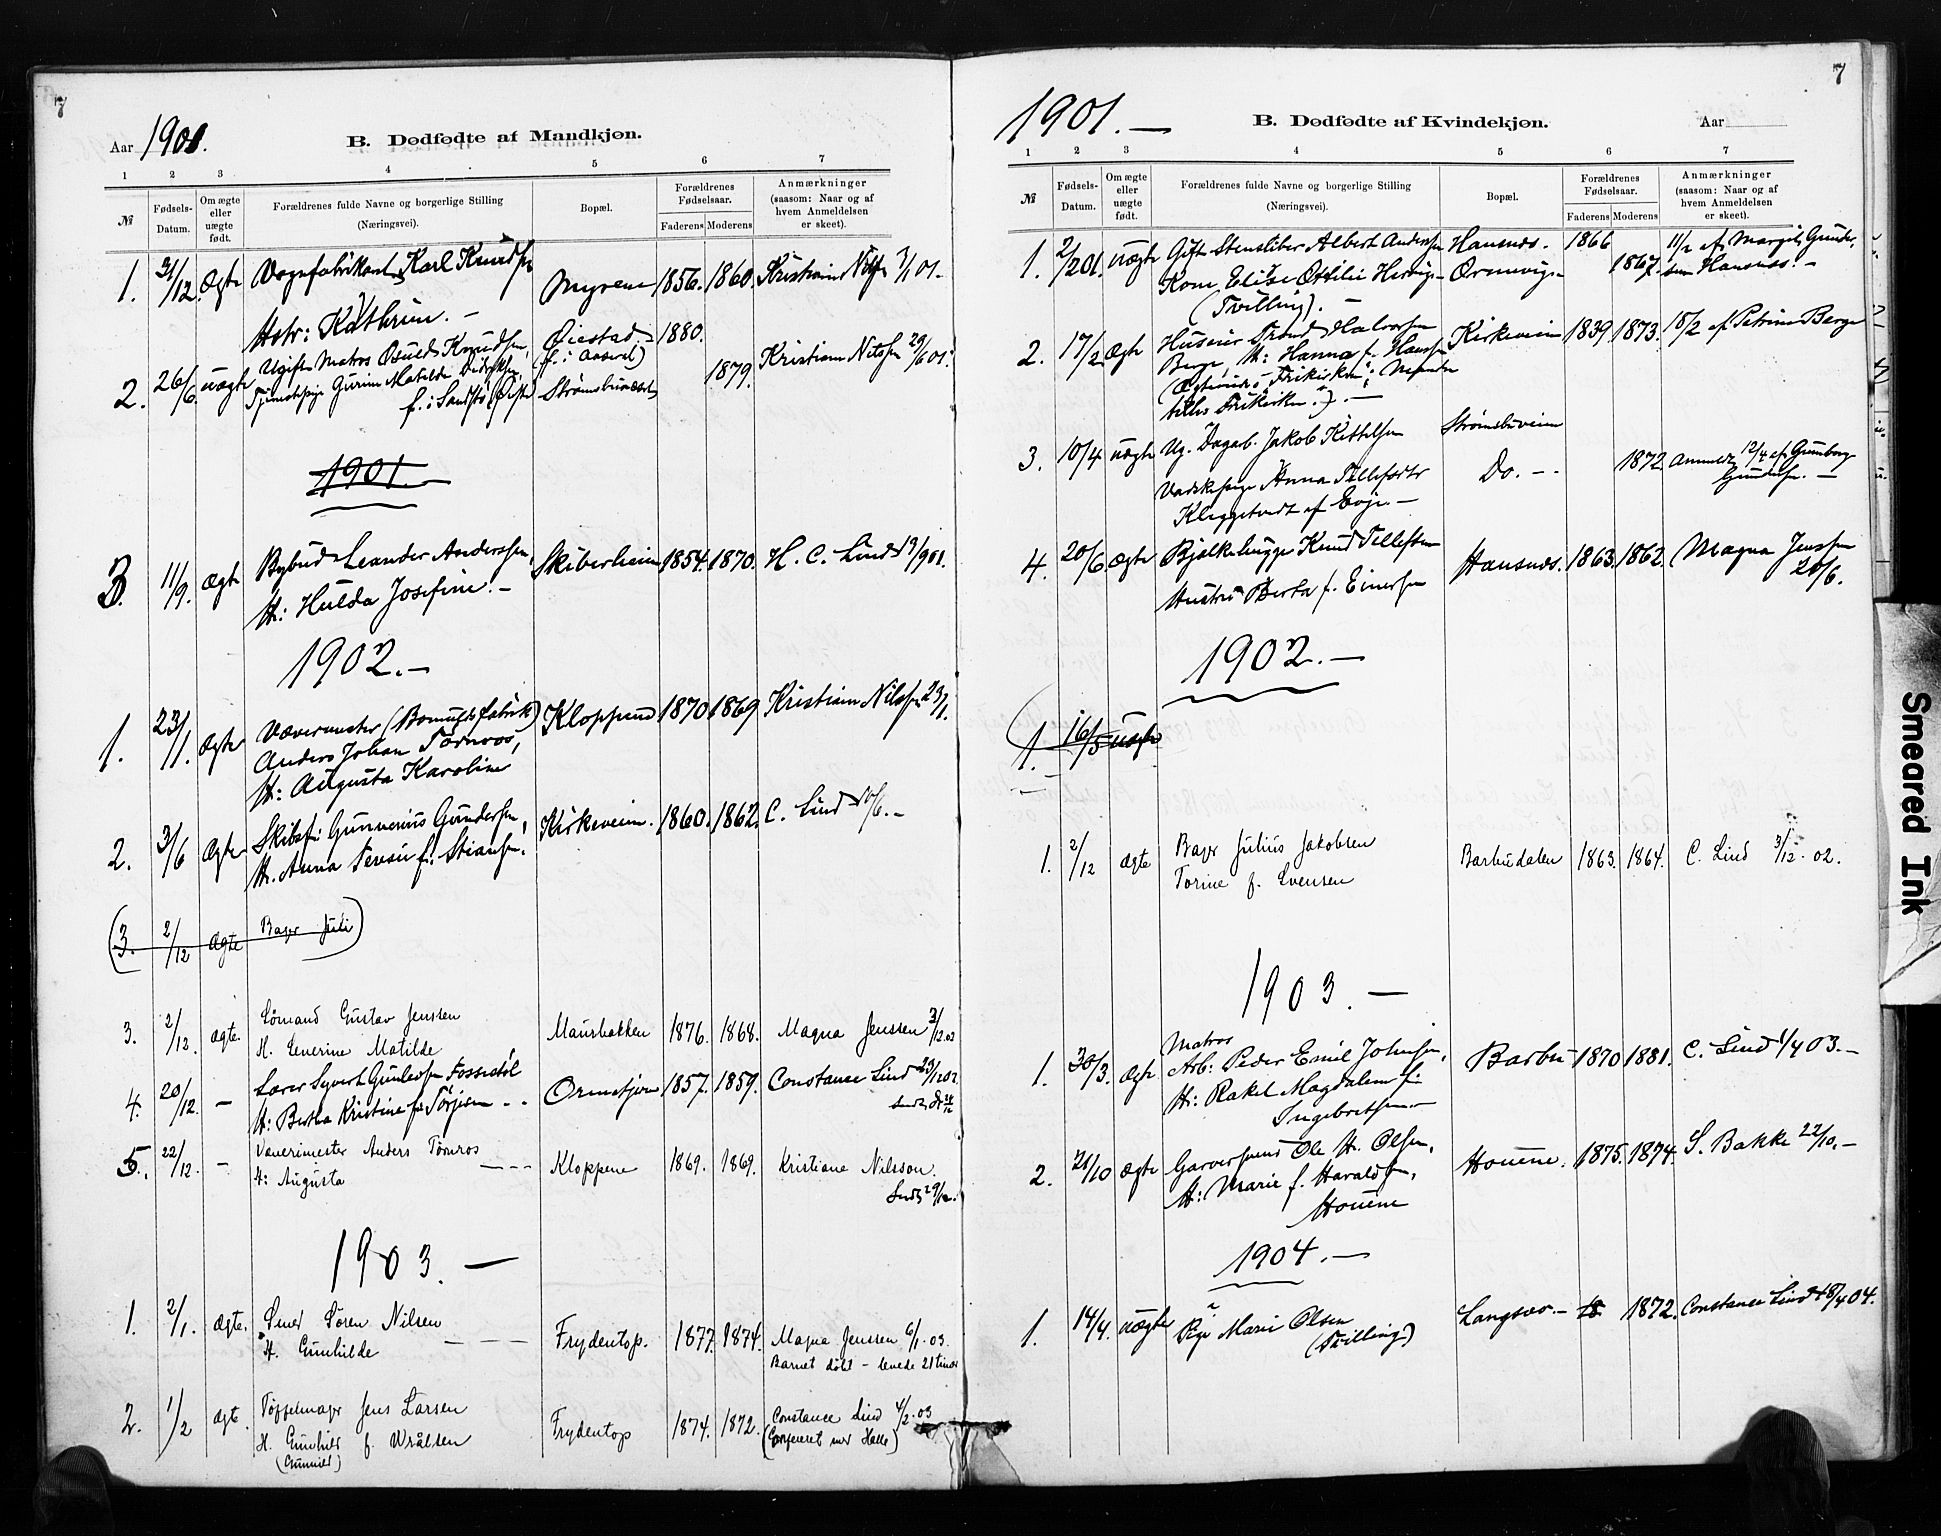 7
Aar 1901.
B. Dødfødte af Mandkjøn.
1 2 3 4 5 6 7
№
Fødsels-
Datum.
Om ægte
eller
uægte
født.
Forældrenes fulde Navne og borgerlige Stilling
(Næringsvei).
Bopæl.
Forældrenes
Fødselsaar.
Faderens Moderens
Anmærkninger
(saasom: Naar og af
hvem Anmeldelsen
er skeet).
1. 31/12. Ægte Karl Knudsen Myrene 1856. 1860. Kristiane Nilsen 3/1 01.
Hstr: Kathrine. –
2. 26/6. uægte Ugift Matros Knudsen, Øiestad. – 1880. Kristiane Nilsen 29/6 01.
Gurine Matilde 1879.
1901.
3. 11/9. Ægte Bybud Leander Anderssen, Skiberheien 1854. 1870. H. C. Lind 13/9 01.
H: Hulda Josefine. –
1902. –
1. 23/1. Ægte Vævermester (Bomuldsfabrik) Kloppene 1870 1869 Kristiane Nilssen 23/1.
Anders Johan Tørnros,
H: Augusta Karoline
2. 3/6 Ægte Gunnerius Gundersen, Kirkeveien. 1860. 1862. C. Lind 10/6. –
H. Anna Teresie f. Stiansen.
(3. 2/12 ægte Bager Juli)
3. 2/12. ægte. Sömand Gustav Jenssen Maurbakken 1876. 1868. Magna Jenssen 3/12.02
H. Severine Matilde
4. 20/12. – Lærer Syvert Gunleiksen Fossestøl Ormetjern 1857. 1859. Constance Lind 23/12 02
H: Bertha Kristine f. Törjesen
5. 22/12. – Væverimester Anders Törnros Kloppene 1869. 1869. Kristiane Nilsson.
H: Augusta
1903. –
1. 2/1. ægte. Smed Sören Nilsen Frydentop. 1877. 1874. Magna Jenssen 6/1. 03.
H. Gunhilde Barnet döbt – levede 21 timer
2. 1/2 ægte. Töffelmager Jens Larsen Frydentop 1874. 1872. Constance Lind 4/2. 03
H. Gunhild f. Wrålsen
(Gunvild)
7
1901. –
B. Dødfødte af Kvindekjøn.
Aar
1 2 3 4 5 6 7
№
Fødsels-
Datum.
Om ægte
eller
uægte
født.
Forældrenes fulde Navne og borgerlige Stilling
(Næringsvei).
Bopæl.
Forældrenes
Fødselsaar.
Faderens Moderens
Anmærkninger
(saasom: Naar og af
hvem Anmeldelsen
er skeet).
1. 2/2 01. uægte Gift Stenstiber Albert Anderssen Hansnes. 1866 11/2 af Margit Gunder-
Kone Elise Ottilie 1867. sen Hansnes. –
(Tvilling). –
2. 17/2 Ægte Huseier Trond Halvorsen Kirkeveien 1839 1873. 18/2 af Petrine Berge
Berge, H: Hanna f. Hansen
3. 10/4 uægte Ug. Dagarb. Jakob Kittelsen Strømsbuveien
Vaskepige Anna Tellefsdtr Do. – 1872 Anmeldt 12/4 af Gunborg
Kleggetvedt af Evje – Gundersen. –
4. 20/6 Ægte Bjelkehugger Knud Tellefsen Hansnes. 1863. 1862. Magna Jenssen
Hustru Berta f. Einersen 20/6.
1902. –
1. 16/5 uægte
1. 2/12 ægte Bager Julius Jakobsen Barbudalen 1863. 1864. C. Lind 3/12. 02.
Torine f. Svensen
1903. –
Matros
1. 30/3. Ægte Arb: Peder Emil Johnsen, Barbu 1870 1881. C. Lind 1/4 03. –
H: Rakel Magdalene f.
Ingebretsen –
2. 21/10 Ægte Garversvend Ole H. Olsen, Houene. 1875. 1874. S. Bakke 22/10. –
H: Marie f. Haraldsen,
Houene
1904. –
1. 14/4. uægte Pige Marie Olsen Langsæv. – 18 1872. Constance Lind 18/4 04.
(Tvilling)
Smeared Ink